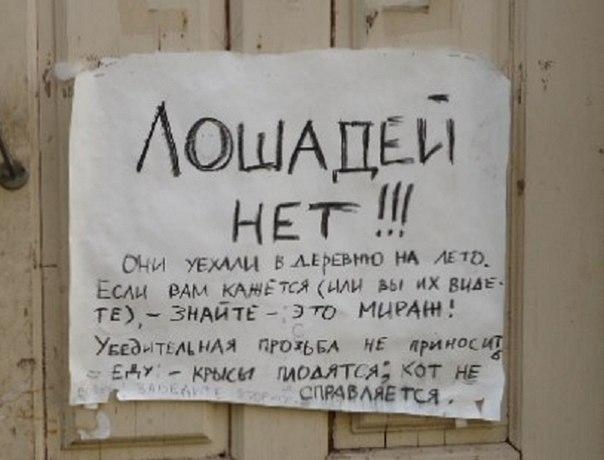 ЛОШАДЕЙ
НЕТ!!!
ОНИ УЕХАЛИ В ДЕРЕВНЮ НА ЛЕТО.
ЕСЛИ ВАМ КАЖЕТСЯ (ИЛИ ВЫ ИХ ВИДЕ-
ТЕ), – ЗНАЙТЕ – ЭТО МИРАЖ!
УБЕДИТЕЛЬНАЯ ПРОЗЬБА НЕ ПРИНОСИТЬ
ЕДУ – КРЫСЫ ПЛОДЯТСЯ; КОТ НЕ
СПРАВЛЯЕТСЯ.